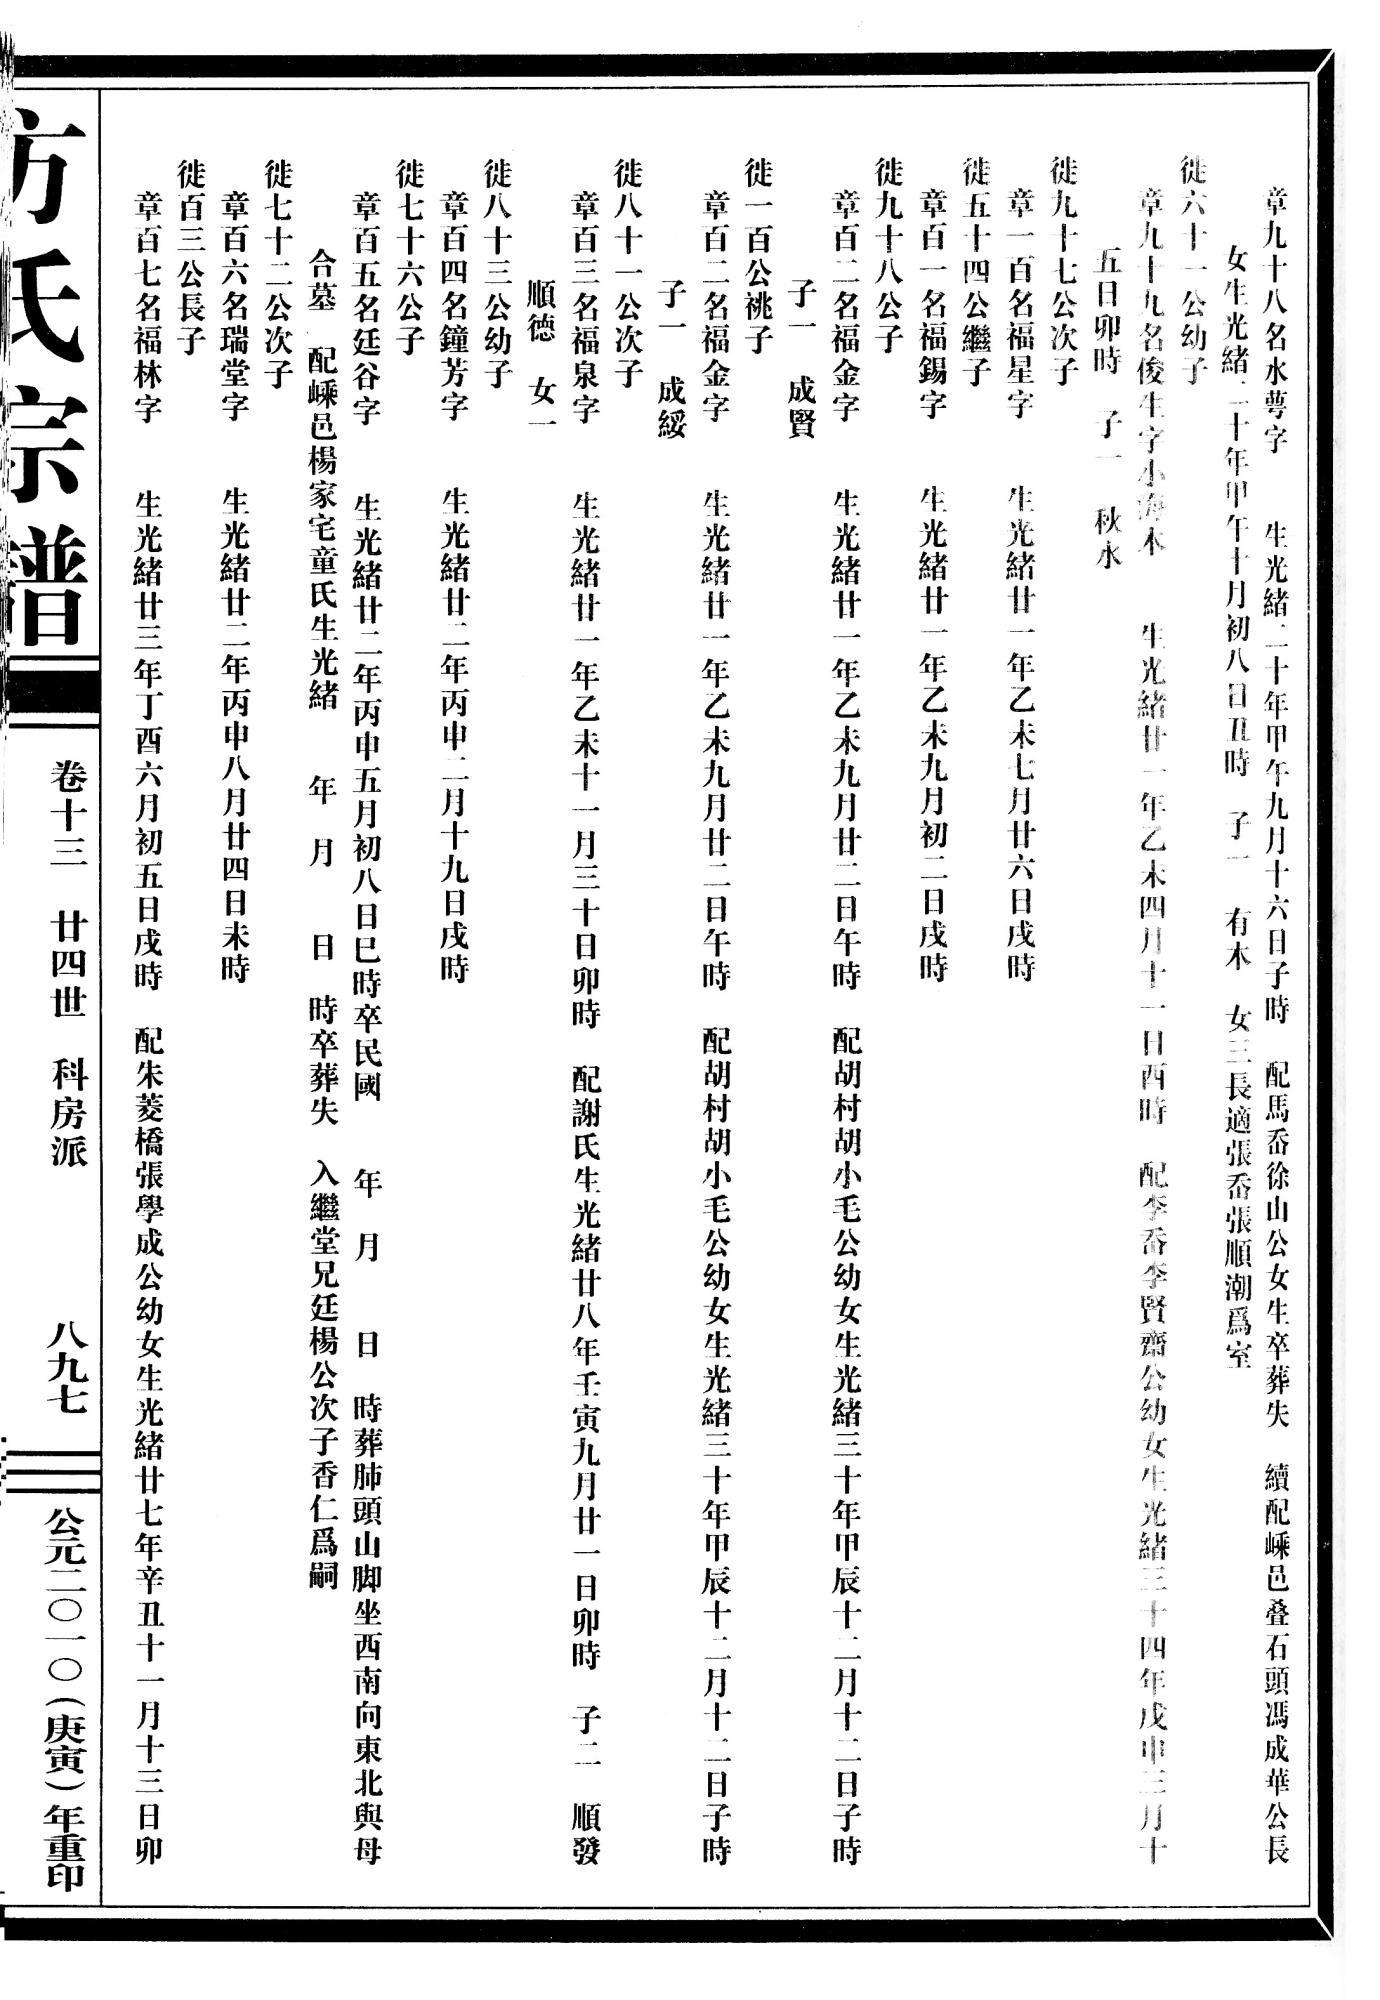 章九十八名水萼字　生光緒二十年甲午九月十六日子時　配馬岙徐山公女生卒葬失　續配嵊邑叠石頭馮成華公長
女生光緒二十年甲午十月初八日丑時　子一　有木　女三長適張岙張順潮爲室
徙六十一公幼子
章九十九名俊生字小海木　生光緒廿一年乙未四月十一日酉時　配李岙李賢齋公幼女生光緒三十四年戊申三月十
五日卯時　子一　秋水
徙九十七公次子
章一百名福星字　生光緒廿一年乙未七月廿六日戌時
徙五十四公繼子
章百一名福錫字　生光緒廿一年乙未九月初二日戌時
徙九十八公子
章百二名福金字　生光緒廿一年乙未九月廿二日午時　配胡村胡小毛公幼女生光緒三十年甲辰十二月十二日子時
子一　成賢
徙一百公祧子
章百二名福金字　生光緒廿一年乙未九月廿二日午時　配胡村胡小毛公幼女生光緒三十年甲辰十二月十二日子時
子一　成綏
徙八十一公次子
章百三名福泉字　生光緒廿一年乙未十一月三十日卯時　配謝氏生光緒廿八年壬寅九月廿一日卯時　子二　順發
順德　女一
徙八十三公幼子
章百四名鐘芳字　生光緒廿二年丙申二月十九日戌時
徙七十六公子
章百五名廷谷字　生光緒廿二年丙申五月初八日巳時卒民國　年　月　日　時葬肺頭山脚坐西南向東北與母
合墓　配嵊邑楊家宅童氏生光緒　年　月　日　時卒葬失　入繼堂兄廷楊公次子香仁爲嗣
徙七十二公次子
章百六名瑞堂字　生光緒廿二年丙申八月廿四日未時
徙百三公長子
章百七名福林字　生光緒廿三年丁酉六月初五日戌時　配朱菱橋張學成公幼女生光緒廿七年辛丑十一月十三日卯
方氏宗譜
卷十三　廿四世　科房派
八九七
公元二〇一〇（庚寅）年重印